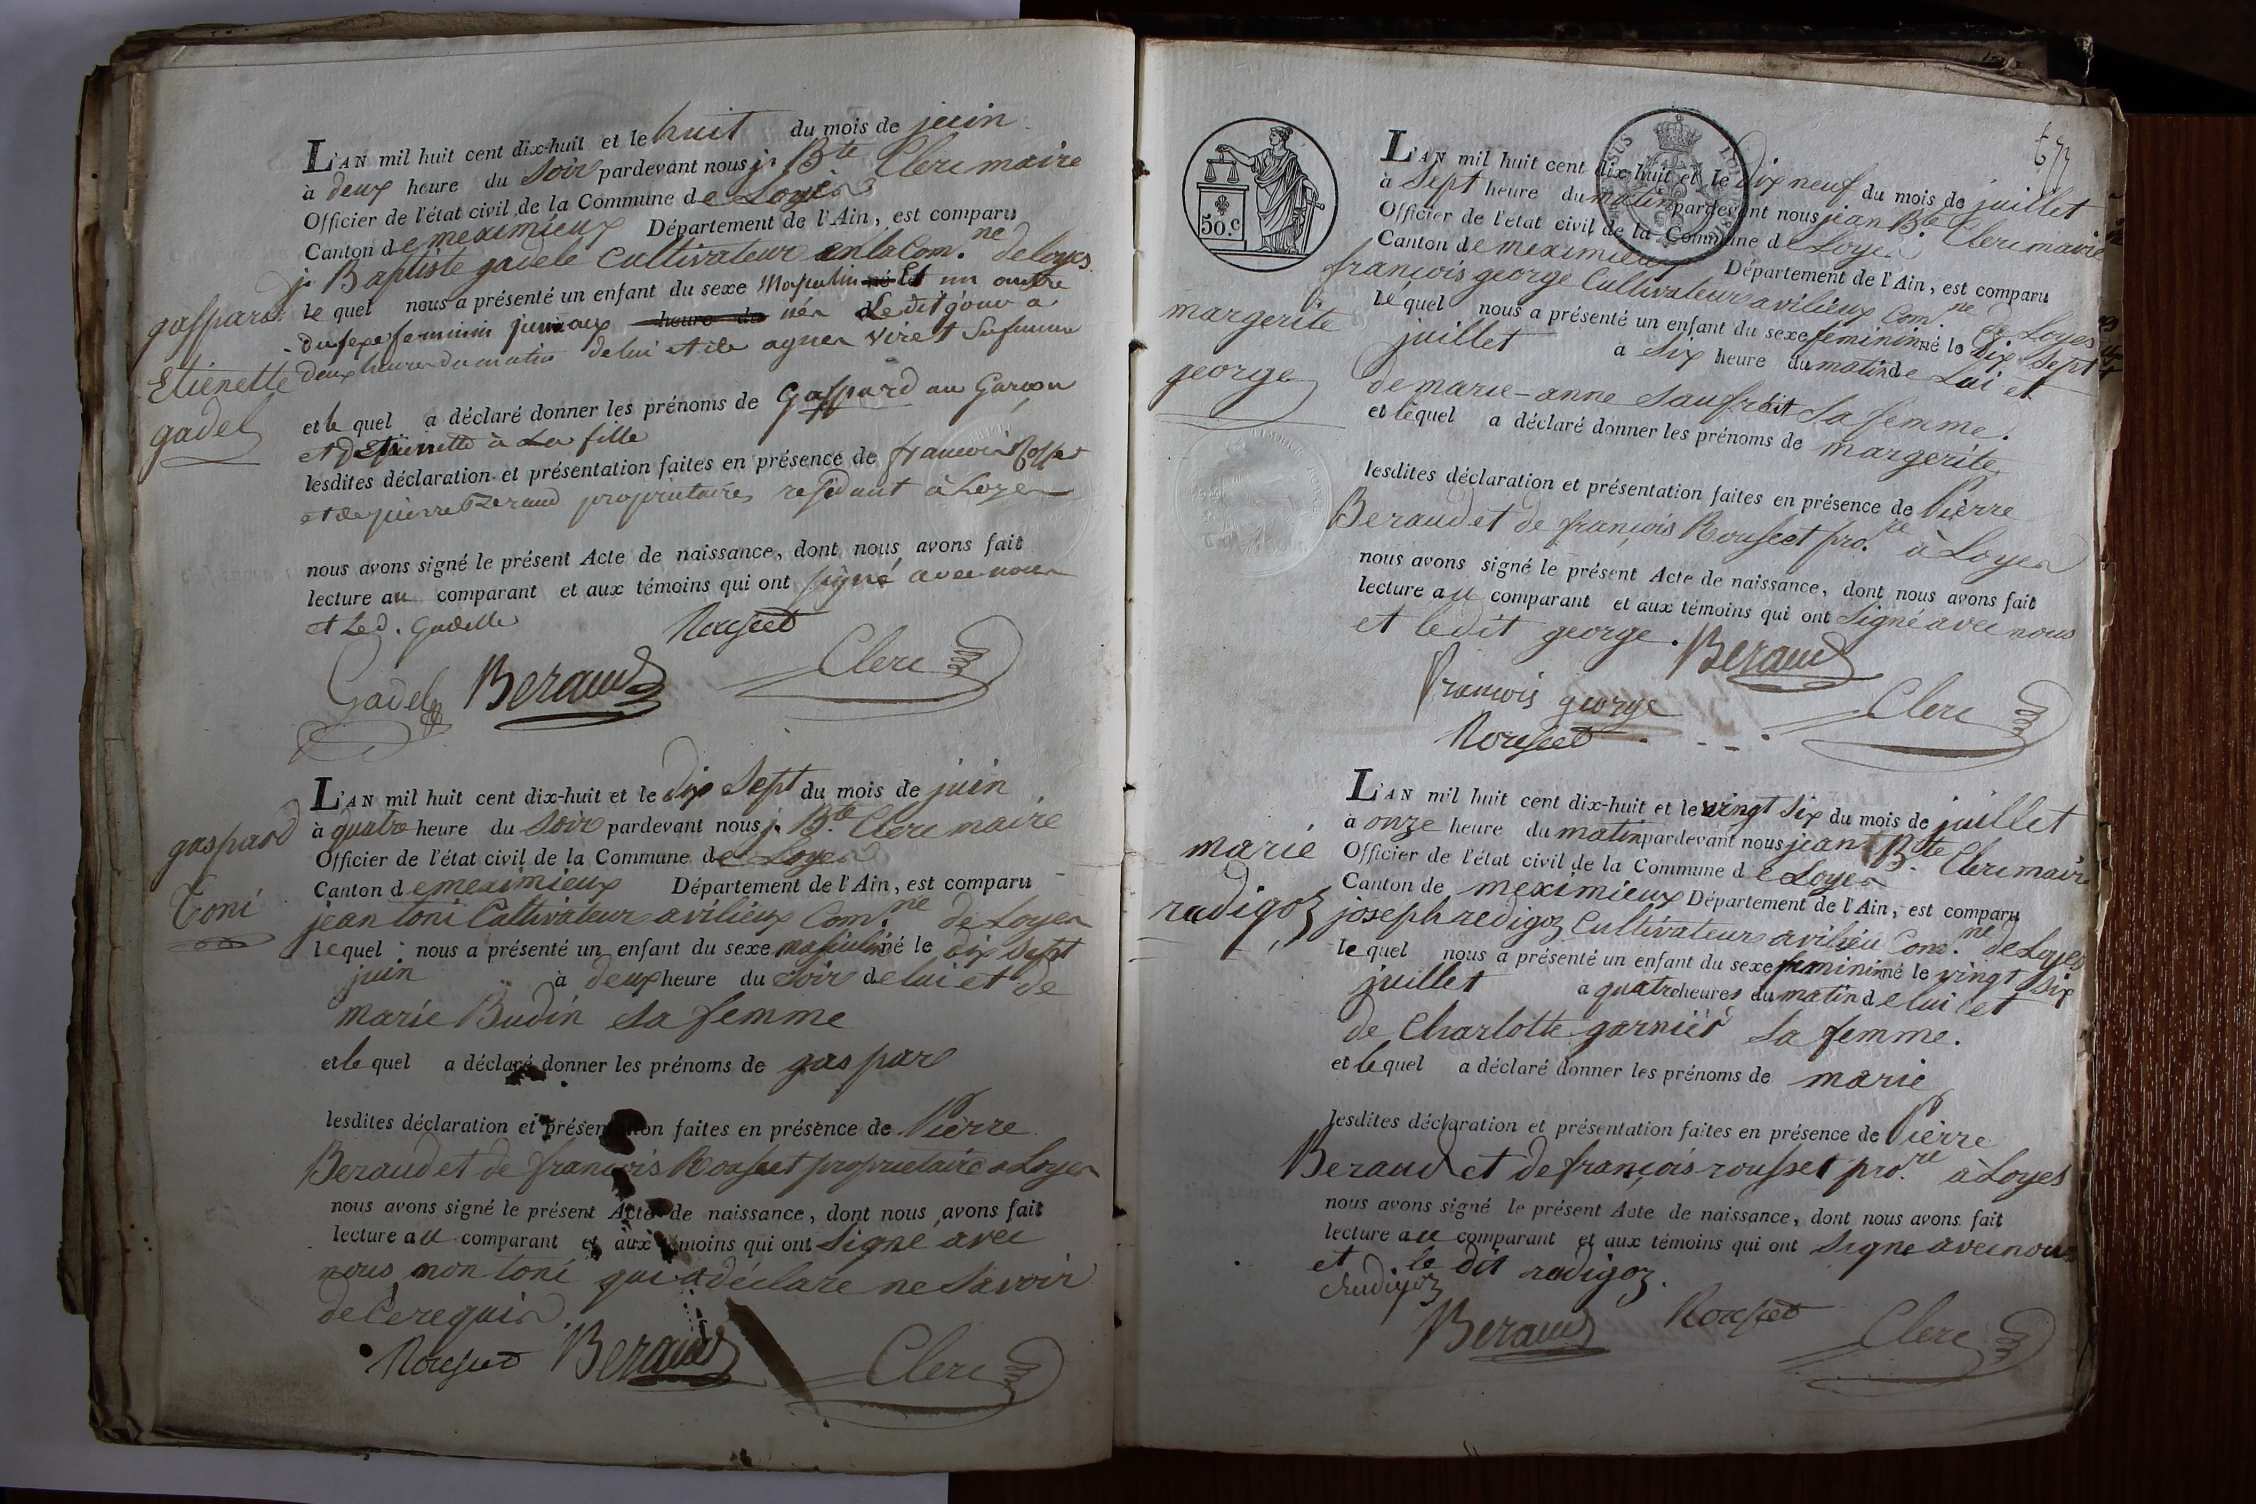 gaspard
Etiènette
gadel
L'AN mil huit cent dix-huit et le huit du mois de juin
à deux heure du soir pardevant nous j. Bte Clerc maire
Officier de l'état civil de la Commune de Loyes
Canton de meximieux Département de l'Ain, est comparu
j. Baptiste gadele Cultivateur en la Com.ne de loyes
le quel nous a présenté un enfant du sexe Masculin né Et un autre
du sexe feminin jumaux heure du nés Ledit jour a
deux heures du matin de lui et de agnes Viret Sa femme
et le quel a déclaré donner les prénoms de Gaspard au Garcon
et d'Etiennette à La fille
lesdites déclaration et présentation faites en présence de francois Rosset
et de pierre Beraud proprietaires residant à Loyes
nous avons signé le présent Acte de naissance, dont nous avons fait
lecture au comparant et aux témoins qui ont signé avec nous
et Led. Gadelle
Rousset
Gadel Beraud Clerc
gaspard
toni
L'AN mil huit cent dix-huit et le dix Sept du mois de juin
à quatre heure du Soir pardevant nous j. Bte. Clerc maire
Officier de l'état civil de la Commune de Loyes
Canton de meximieux Département de l'Ain, est comparu
jean toni Cultivateur a viliéux Com.ne de Loyes
lequel nous a présenté un enfant du sexe masculin né le dix Sept
juin à deux heure du Soir de lui et de
marie Budin sa femme
et le quel a déclaré donner les prénoms de gaspard
lesdites déclaration et présentation faites en présence de Pièrre
Beraud et de françois Rousset proprietaire a Loyes
nous avons signé le présent Acte de naissance, dont nous avons fait
lecture au comparant et aux témoins qui ont Signé avec
nous, non toni qui a déclaré ne Savoir
de Ce requis.
Rousset Beraud Clerc
50.c
margerite
george
L'AN mil huit cent dix-huit et le dix neuf du mois de juillet
à Sept heure du matin pardevant nous jean Bte. Clerc maire
Officier de l'état civil de la Commune de Loyes
Canton de meximieux Département de l'Ain, est comparu
françois george Cultivateur a viliéux Com.ne de Loyes
Le quel nous a présenté un enfant du sexe feminin né le dix Sept
juillet à Six heure du matin de Lui et
de marie-anne Saufroit Sa femme.
et lequel a déclaré donner les prénoms de margerite
lesdites déclaration et présentation faites en présence de Pièrre
Beraud et de françois Rousset pro.re à Loyes
nous avons signé le présent Acte de naissance, dont nous avons fait
lecture au comparant et aux témoins qui ont Signé avec nous
et ledit george. Beraud
francois george Clerc
Rousset
marie
radigoz
L'AN mil huit cent dix-huit et le vingt Six du mois de juillet
à onze heure du matin pardevant nous jean Bte. Clerc maire
Officier de l'état civil de la Commune de Loyes
Canton de meximieux Département de l'Ain, est comparu
joseph redigoz Cultivateur a viliéu Com.ne de Loyes
le quel nous a présenté un enfant du sexe feminin né le vingt Six
juillet à quatre heures du matin de lui et
de Charlotte garnier Sa femme.
et le quel a déclaré donner les prénoms de marie
lesdites déclaration et présentation faites en présence de Pièrre
Beraud et de françois rousset pro.re à Loyes
nous avons signé le présent Acte de naissance, dont nous avons fait
lecture au comparant et aux témoins qui ont Signé avec nous
et le dit radigoz.
Beraud Rousset Clerc